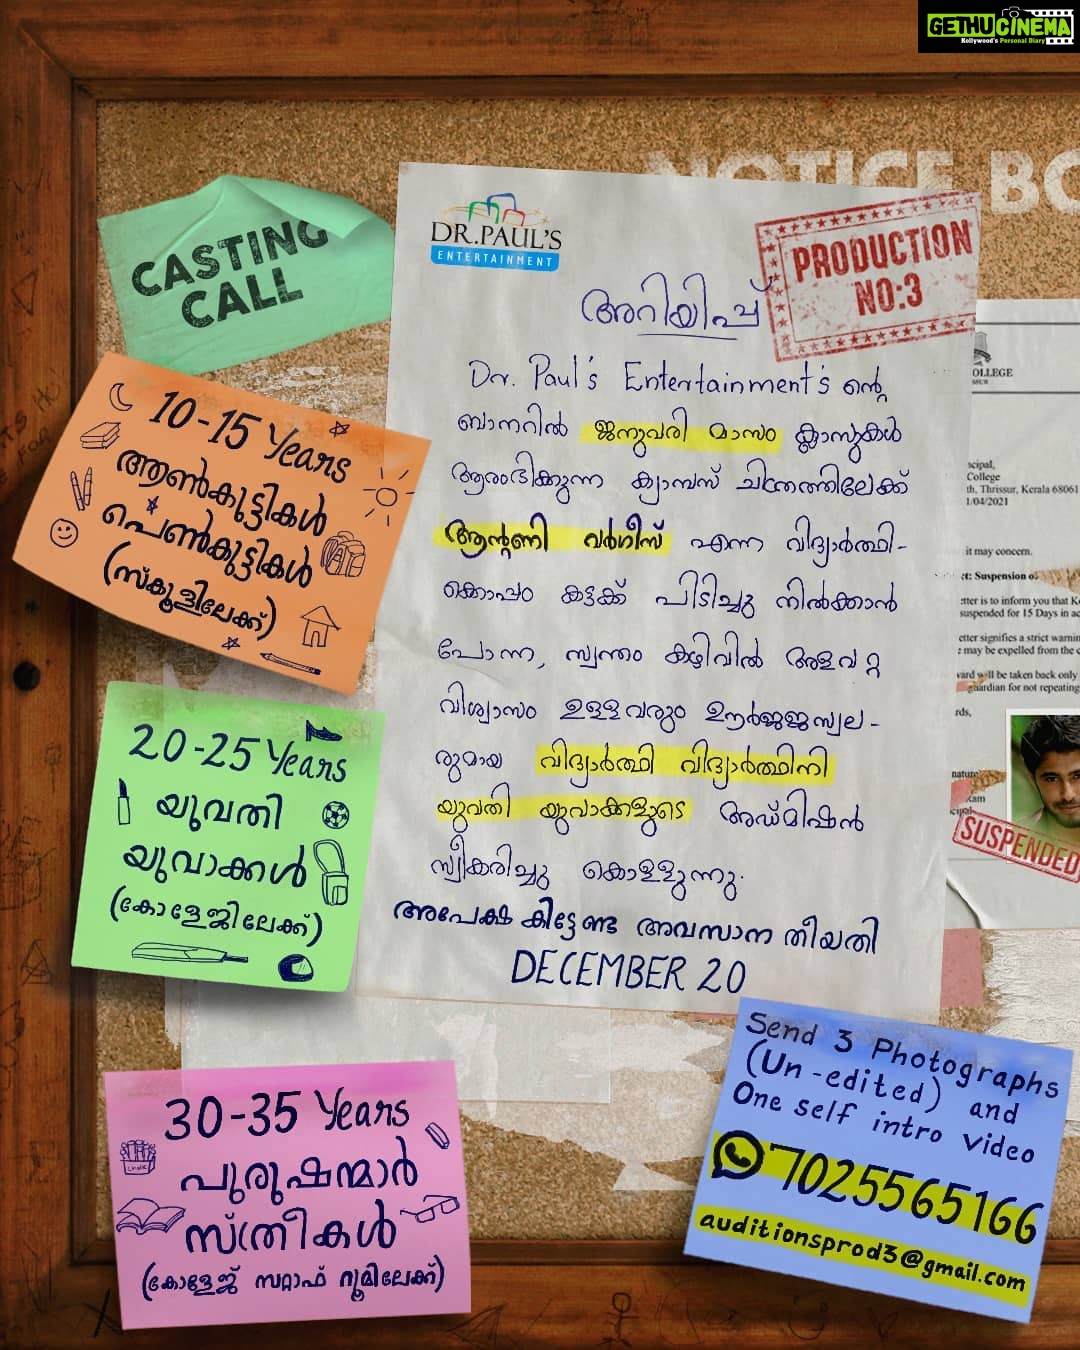 GETHU CINEMA
Kollywood's Personal Diary
NOTICE BO
CASTING
CALL
DR.PAUL'S
ENTERTAINMENT
PRODUCTION
NO:3
അറിയിപ്പ്
Dr. Paul's Entertainment's ന്റെ
ബാനറിൽ ജനുവരി മാസം ക്ലാസുകൾ
ആരംഭിക്കുന്ന ക്യാമ്പസ് ചിത്രത്തിലേക്ക്
ആന്റണി വർഗീസ് എന്ന വിദ്യാർത്ഥി-
ക്കൊപ്പം കട്ടക്ക് പിടിച്ചു നിൽക്കാൻ
പോന്ന, സ്വന്തം കഴിവിൽ അളവറ്റ
വിശ്വാസം ഉള്ളവരും ഊർജ്ജസ്വല-
രുമായ വിദ്യാർത്ഥി വിദ്യാർത്ഥിനി
യുവതി യുവാക്കളുടെ അഡ്മിഷൻ
സ്വീകരിച്ചു കൊള്ളുന്നു.
അപേക്ഷ കിട്ടേണ്ട അവസാന തീയതി
DECEMBER 20
10-15 Years
ആൺകുട്ടികൾ
പെൺകുട്ടികൾ
(സ്കൂളിലേക്ക്)
20-25 Years
യുവതി
യുവാക്കൾ
(കോളേജിലേക്ക്)
30-35 Years
പുരുഷന്മാർ
സ്ത്രീകൾ
(കോളേജ് സ്റ്റാഫ് റൂമിലേക്ക്)
Send 3 Photographs
(Un-edited) and
One self intro video
7025565166
auditionsprod3@gmail.com
OLLEGE
College
th, Thrissur, Kerala 68061
1/04/2021
it may concern.
ct: Suspension o
tter is to inform you that K
suspended for 15 Days in ac
etter signifies a strict warnin
may be expelled from the c
ward will be taken back only
guardian for not repeating
rds,
nature
SUSPENDED